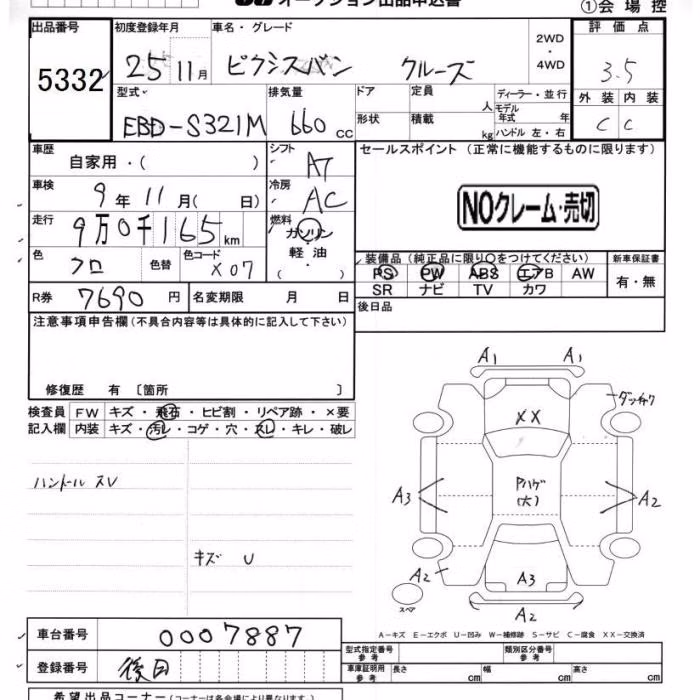 オークション出品申込書
①会場控
出品番号 初度登録年月 車名・グレード 評価点
5332 25 11月 ピクシスバン クルーズ 2WD・4WD 3.5
型式 排気量 ドア 定員 人 ディーラー・並行 外装 内装
EBD-S321M 660cc 形状 積載 kg モデル年式 年 ハンドル 左・右 C C
車歴 自家用・( ) シフト AT セールスポイント (正常に機能するものに限ります)
車検 9年11月( 日) 冷房 AC NOクレーム・売切
走行 9万0千165km 燃料 ガソリン・軽油・( )
色 クロ 色替 色コード X07 装備品(純正品に限り○をつけてください) 新車保証書
PS PW ABS エアB AW 有・無
SR ナビ TV カワ
R券 7690円 名変期限 月 日 後日品
注意事項申告欄(不具合内容等は具体的に記入して下さい)
修復歴 有 〔箇所 〕
検査員 FW キズ・飛石・ヒビ割・リペア跡・×要
記入欄 内装 キズ・汚レ・コゲ・穴・スレ・キレ・破レ
ハンドル スレ
キズ U
A1 A1
XX
Pハゲ
(大)
A3 A2
A2 A3
スペア A2
A-キズ E-エクボ U-凹み W-補修跡 S-サビ C-腐食 XX-交換済
車台番号 0007887 型式指定番号 参考 類別区分番号 参考
登録番号 後日 車庫証明用 参考 長さ cm 幅 cm 高さ cm
希望出品コーナー(コーナーは各会場により異なります。)